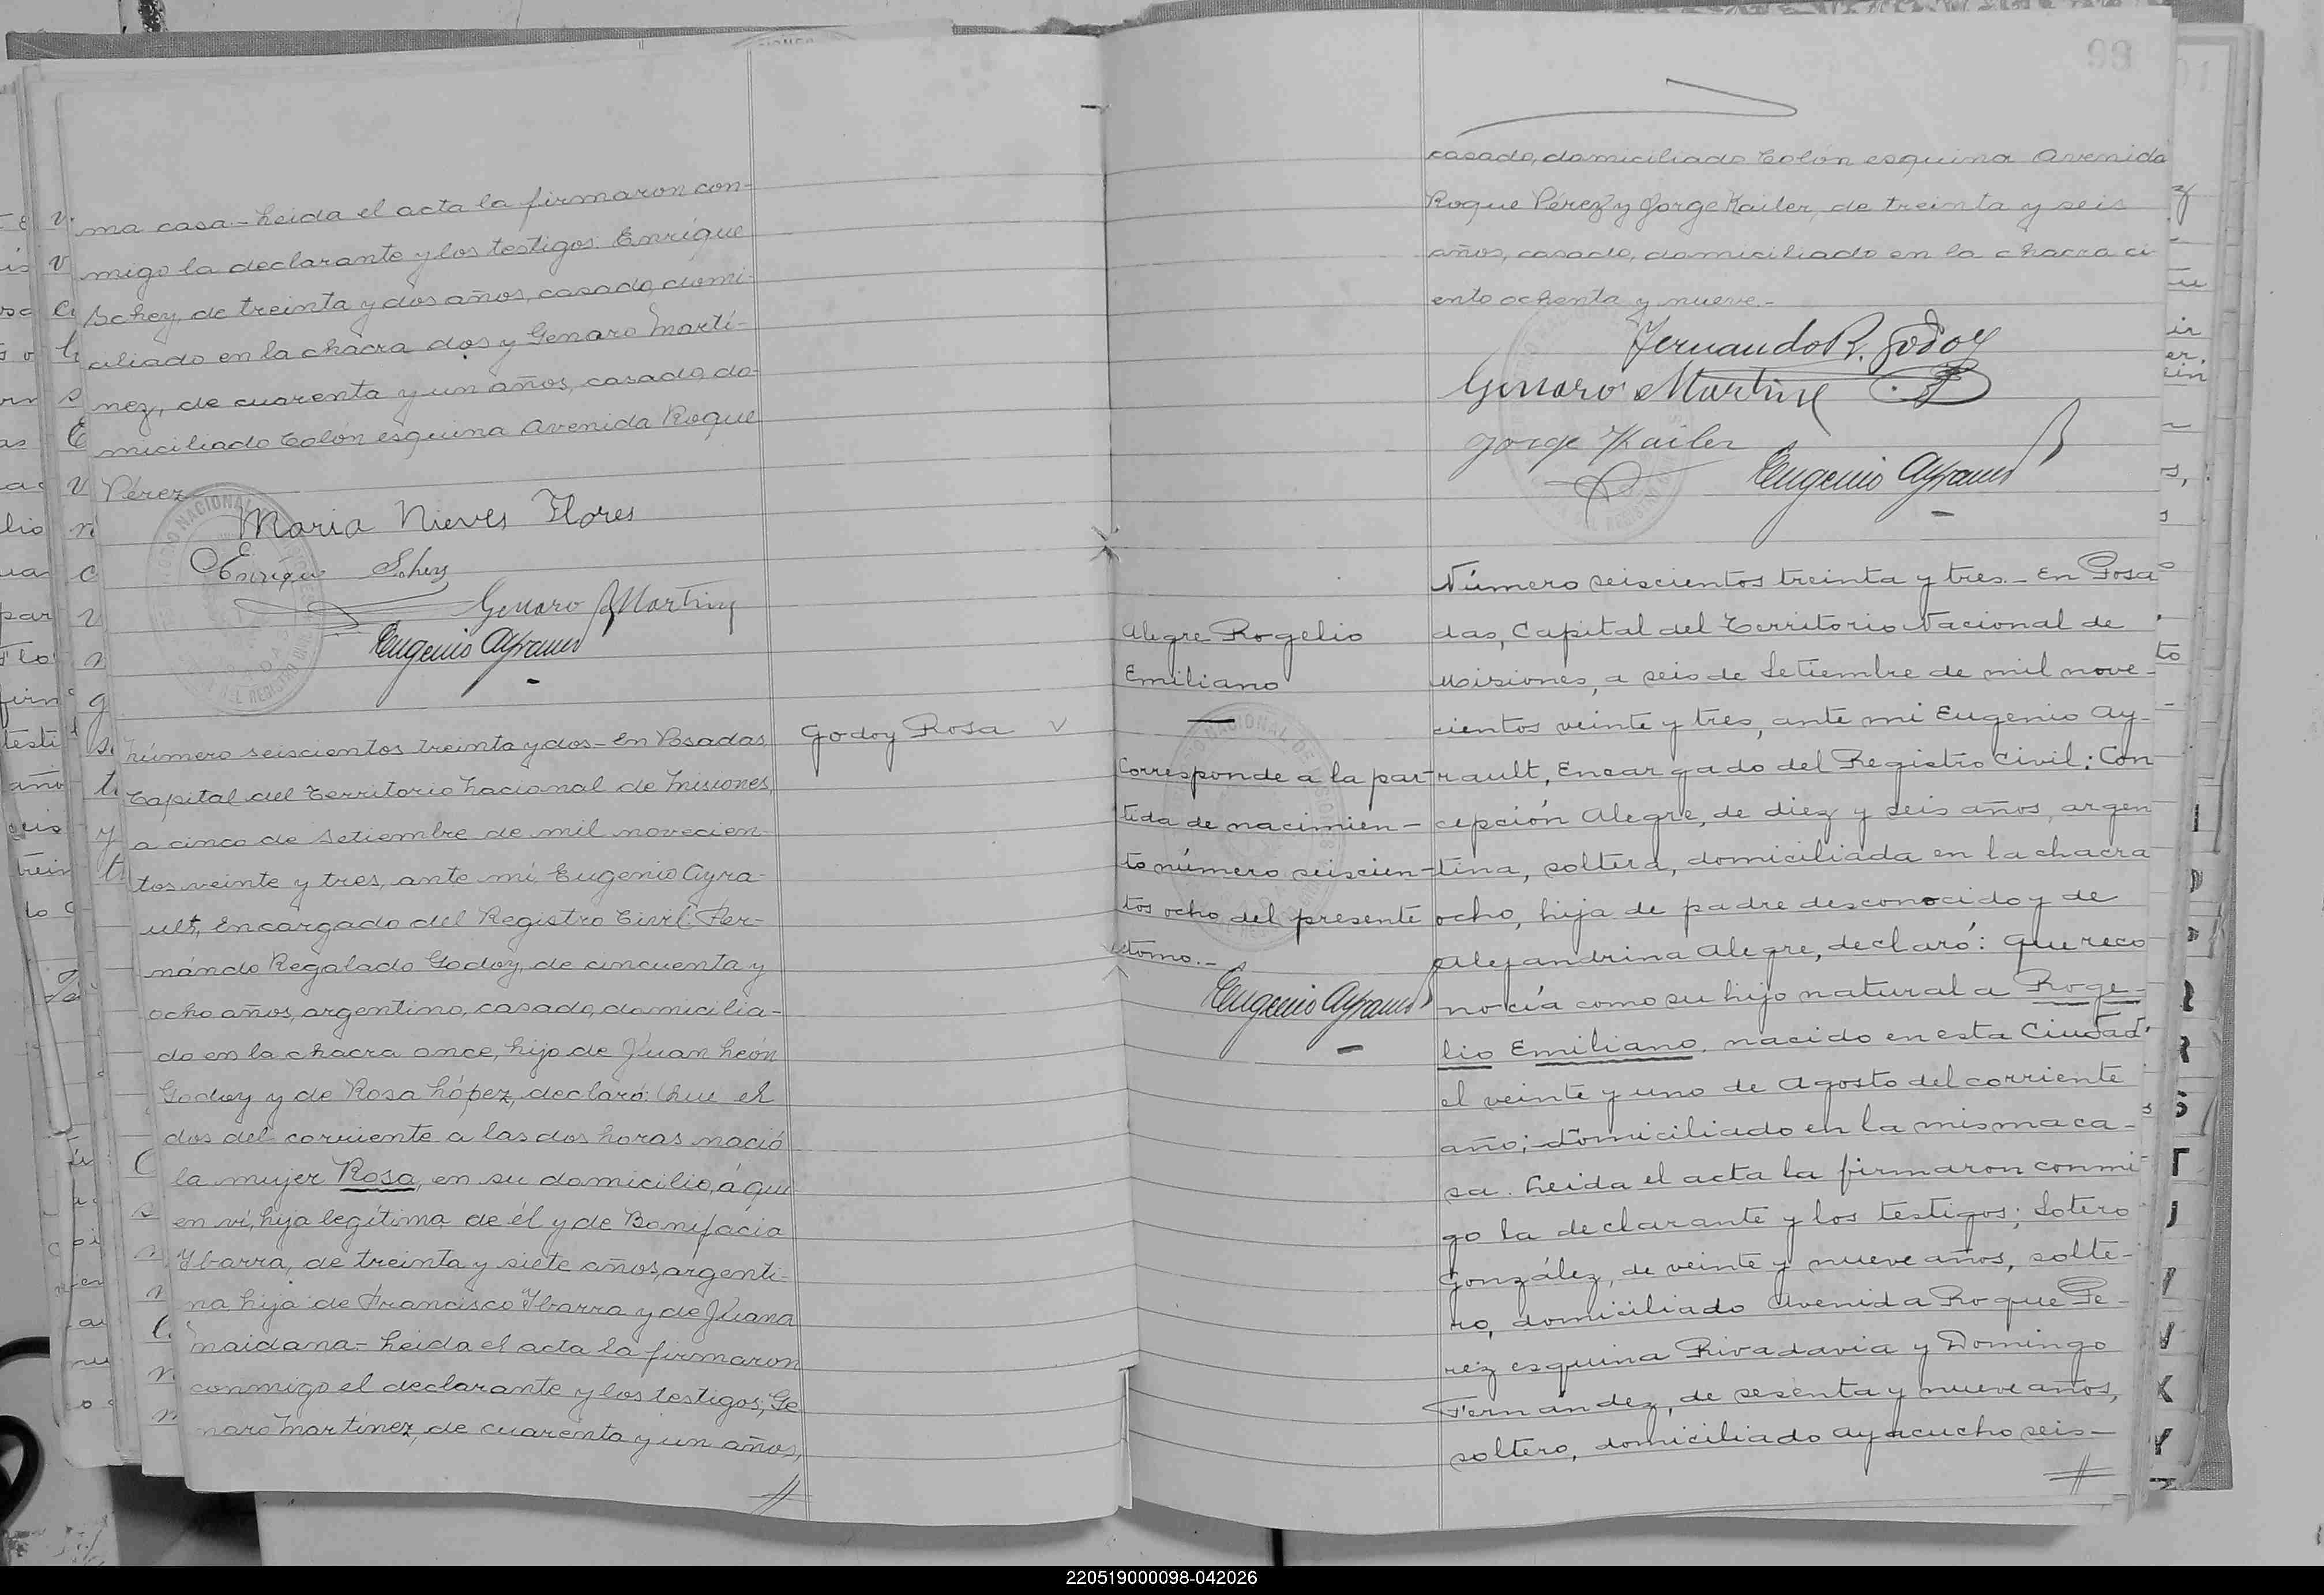 ma casa.- Leida el acta la firmaron con-
migo la declarante y los testigos: Enrique
Schey, de treinta y dos años, casado, domi-
ciliado en la chacra dos y Genaro Martí-
nez, de cuarenta y un años, casado, do-
miciliado Colón esquina Avenida Roque
Pérez
Maria Nieves Flores
Enrique Schey
Genaro Martinez
Eugenio Ayrault
Número seiscientos treinta y dos - En Posadas,
Capital del Territorio Nacional de Misiones,
a cinco de Setiembre de mil novecien-
tos veinte y tres, ante mí, Eugenio Ayra-
ult, Encargado del Registro Civil: Fer-
nando Regalado Godoy, de cincuenta y
ocho años, argentino, casado, domicilia-
do en la chacra once, hijo de Juan León
Godoy y de Rosa López, declaró: Que el
dos del corriente a las dos horas nació
la mujer Rosa, en su domicilio, á qui-
en ví, hija legítima de él y de Bonifacia
Ybarra, de treinta y siete años, argenti-
na hija de Francisco Ybarra y de Juana
Maidana- Leida el acta la firmaron
conmigo el declarante y los testigos; Ge
naro Martínez, de cuarenta y un años,
Godoy Rosa
99
casado, domiciliado Colón esquina Avenida
Roque Pérez y Jorge Kailer, de treinta y seis
años, casado, domiciliado en la chacra ci
ento ochenta y nueve.-
Fernando R. Godoy
Genaro Martinez
Jorge Kailer
Eugenio Ayrault
Alegre Rogelio
Emiliano
Corresponde a la par-
tida de nacimien-
to número seiscien-
tos ocho del presente
tomo.-
Eugenio Ayrault
Número seiscientos treinta y tres.- En Posa
das, Capital del Territorio Nacional de
Misiones, a seis de Setiembre de mil nove-
cientos veinte y tres, ante mi Eugenio Ay-
rault, Encargado del Registro Civil: Con
cepción Alegre, de diez y seis años, argen
tina, soltera, domiciliada en la chacra
ocho, hija de padre desconocido y de
Alejandrina Alegre, declaró: Que reco
nocía como su hijo natural a Roge-
lio Emiliano, nacido en esta Ciudad
el veinte y uno de Agosto del corriente
año; domiciliado en la misma ca-
sa. Leida el acta la firmaron conmi-
go la declarante y los testigos; Sotero
González, de veinte y nueve años, solte-
ro, domiciliado Avenida Roque Pe-
rez esquina Rivadavia y Domingo
Fernández, de sesenta y nueve años,
soltero, domiciliado Ayacucho seis-
220519000098-042026